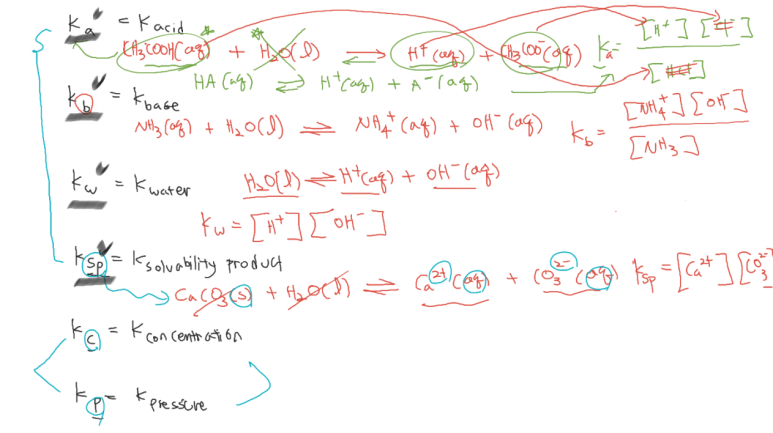 Ka = Kacid
CH₃COOH(aq) + H₂O(l) ⇌ H⁺(aq) + CH₃COO⁻(aq) Ka = [H⁺] [
HA(aq) ⇌ H⁺(aq) + A⁻(aq) [ ]
Kb = Kbase
NH₃(aq) + H₂O(l) ⇌ NH₄⁺(aq) + OH⁻(aq) Kb = [NH₄⁺][OH⁻]
[NH₃]
Kw = Kwater
H₂O(l) ⇌ H⁺(aq) + OH⁻(aq)
Kw = [H⁺][OH⁻]
Ksp = Ksolvability product
CaCO₃(s) + H₂O(l) ⇌ Ca²⁺(aq) + CO₃²⁻(aq) Ksp = [Ca²⁺][CO₃²⁻
Kc = Kconcentration
Kp = Kpressure